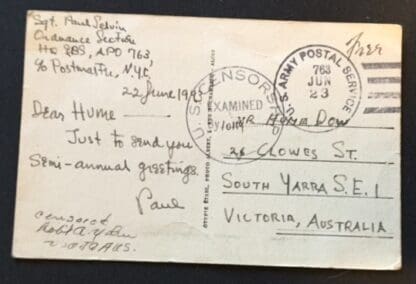 Sgt. Paul Selvin
Ordnance Section
HQ SOS, APO 763,
c/o Postmaster, N.Y.C.
22 June 1943
Dear Hume
Just to send you
Semi-annual greetings.
Paul
censored
Free
U.S. CENSORSHIP
EXAMINED
By
U.S. ARMY POSTAL SERVICE
763
JUN
23
MR HUME DOW
36 CLOWES ST.
SOUTH YARRA S.E.1
VICTORIA, AUSTRALIA